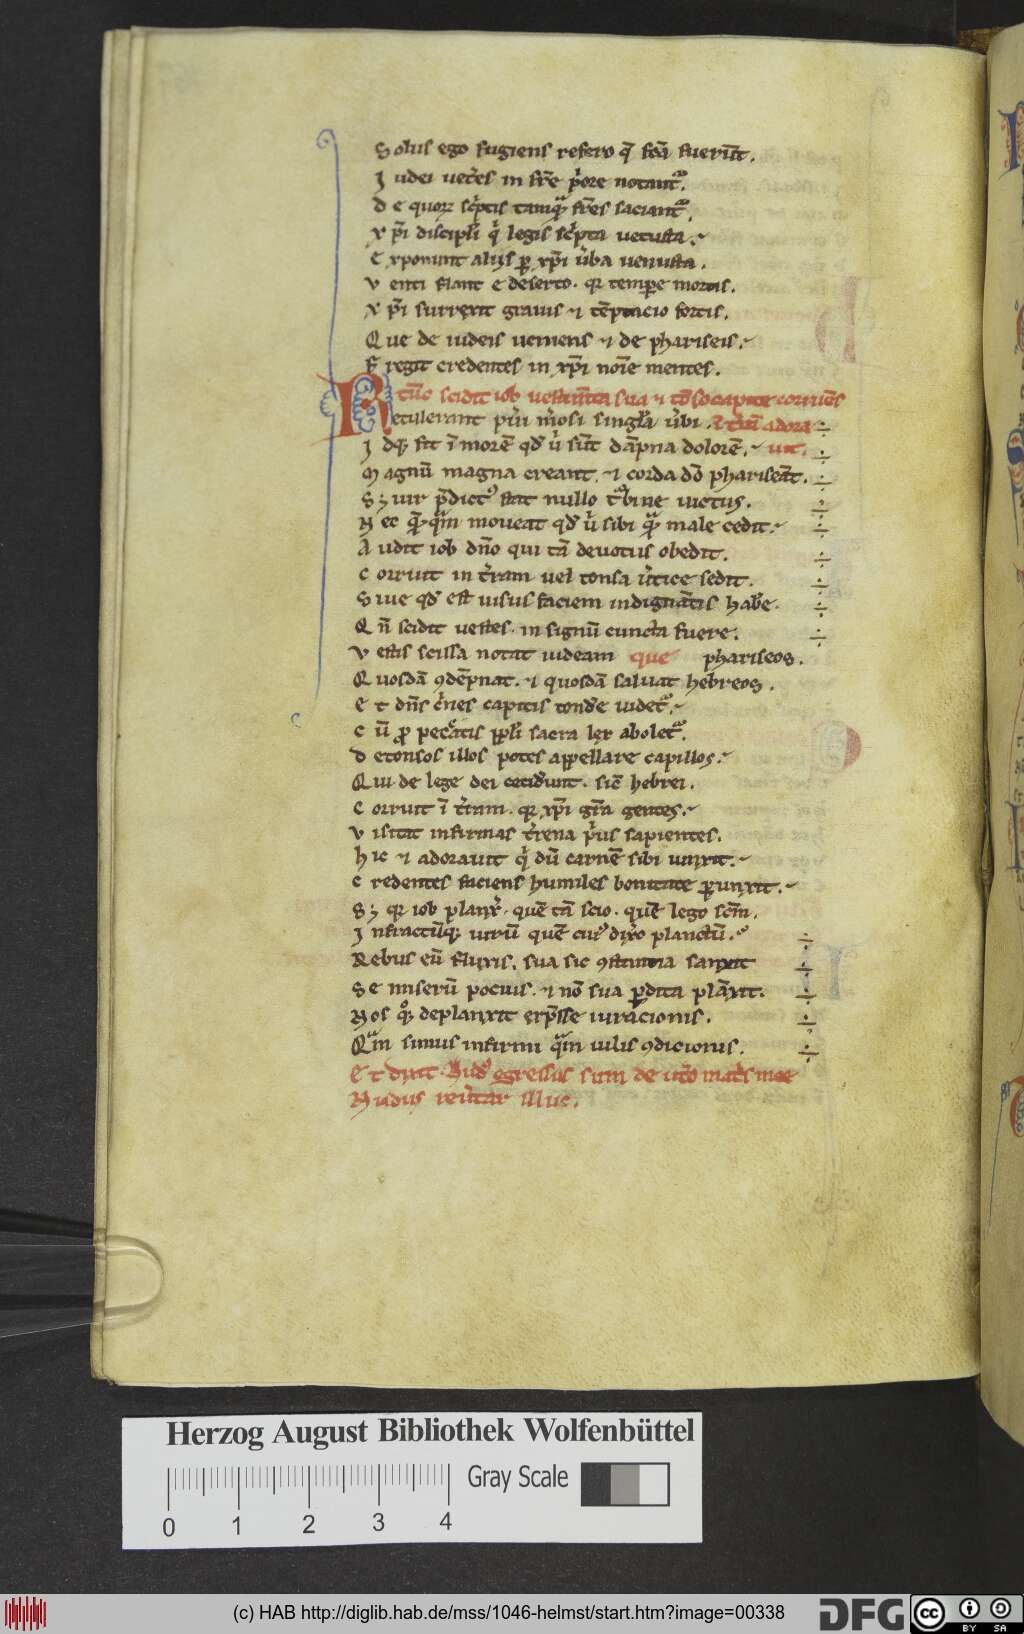 Solus ego fugiens refero q̄ fcā fueruīt.
Iudei vet̄es in frē p̄ore notant᷑.
De quorꝝ sc̄ptis tamq̄ fr̄es saciant᷑.
Xp̄i discipl̄i q̄ legis sc̄pta uetusta.
Exponunt aliis ꝑ xp̄i ūba uenusta.
Venti flant e deserto. qꝛ tempꝛe mortis.
Xp̄i surrexit grauis ⁊ tēptacio fortis.
Que de iudeis ueniens ⁊ de phariseis.
Fregit credentes in xp̄i noīe mentes.
tūc scidit iob uestimēta sua ⁊ tōso capite corruēs
Retulerant pīri moysi singl̄a ūbi. ⁊ t̄rā adora
Idqꝫ fit ī morē qd̄ ū sūt dāpna dolorē. uit.
Magnū magna creant. ⁊ corda dō phariseāt.
Sꝫ uir p̄dict᷒ stat nullo t᷑bine uictus.
Nec q̄mq̄m moueat qd̄ ū sibi q̄ male cedit.
Audit iob dn̄o qui tā deuotus obedit.
Corruit in t̄ram uel tonsa ūtice sedit.
Siue qd̄ est uisus faciem indignātis habē.
Qn̄ scidit uestes. in signū cuncta fuere.
Vestis scissa notat iudeam que phariseos.
Quosdā ꝯdēpnat. ⁊ quosdā saluat hebreos.
Et dn̄s c̄nes capitis tondē iudet᷑.
Cū ꝓ peccātis ppl̄i sacra lex abolet᷑.
Detonsos illos potes appellare capillos.
Qui de lege dei cecidunt. sic̄ hebrei.
Corruit ī t̄ram. qꝛ xp̄i gr̄a gentes.
Visitat infirmas t̄rena p̄us sapientes.
Hic ⁊ adorauit q̄ dū carnē sibi unxit.
Credentes faciens humiles bonitate ꝑunxit.
Sꝫ qꝛ iob planx̄. quē tā scio. quē lego scm̄.
Infractūqꝫ uirū quē cur᷒ dix̄o planctū.
Rebus eū fluxis. sua sic ꝯstantia sanxit
Se miserū pocuis. ⁊ nō sua ꝑdita plāxit.
Nos qꝫ deplanxit exp̄sse iurācionis.
Qm̄ simus infirmi q̄m uilis ꝯdicionis.
Et dixit. Nud᷒ egressus sum de ut̄o mat̄s mee
Nudus reūtar illuc.
Herzog August Bibliothek Wolfenbüttel
Gray Scale
0 1 2 3 4
(c) HAB http://diglib.hab.de/mss/1046-helmst/start.htm?image=00338
DFG
cc BY SA